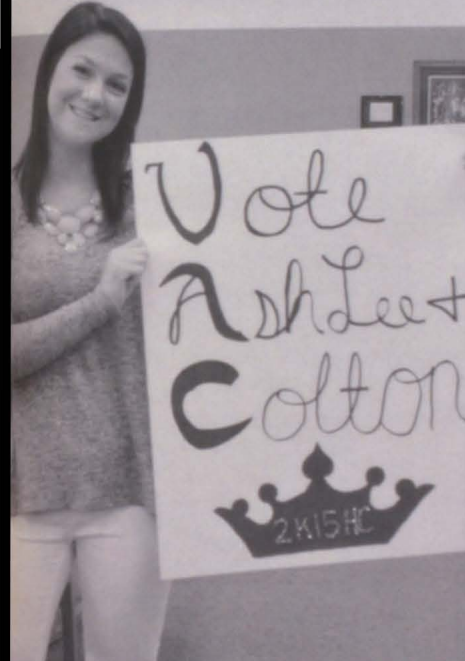 Vote
AshLee +
Colton
2K15 HC